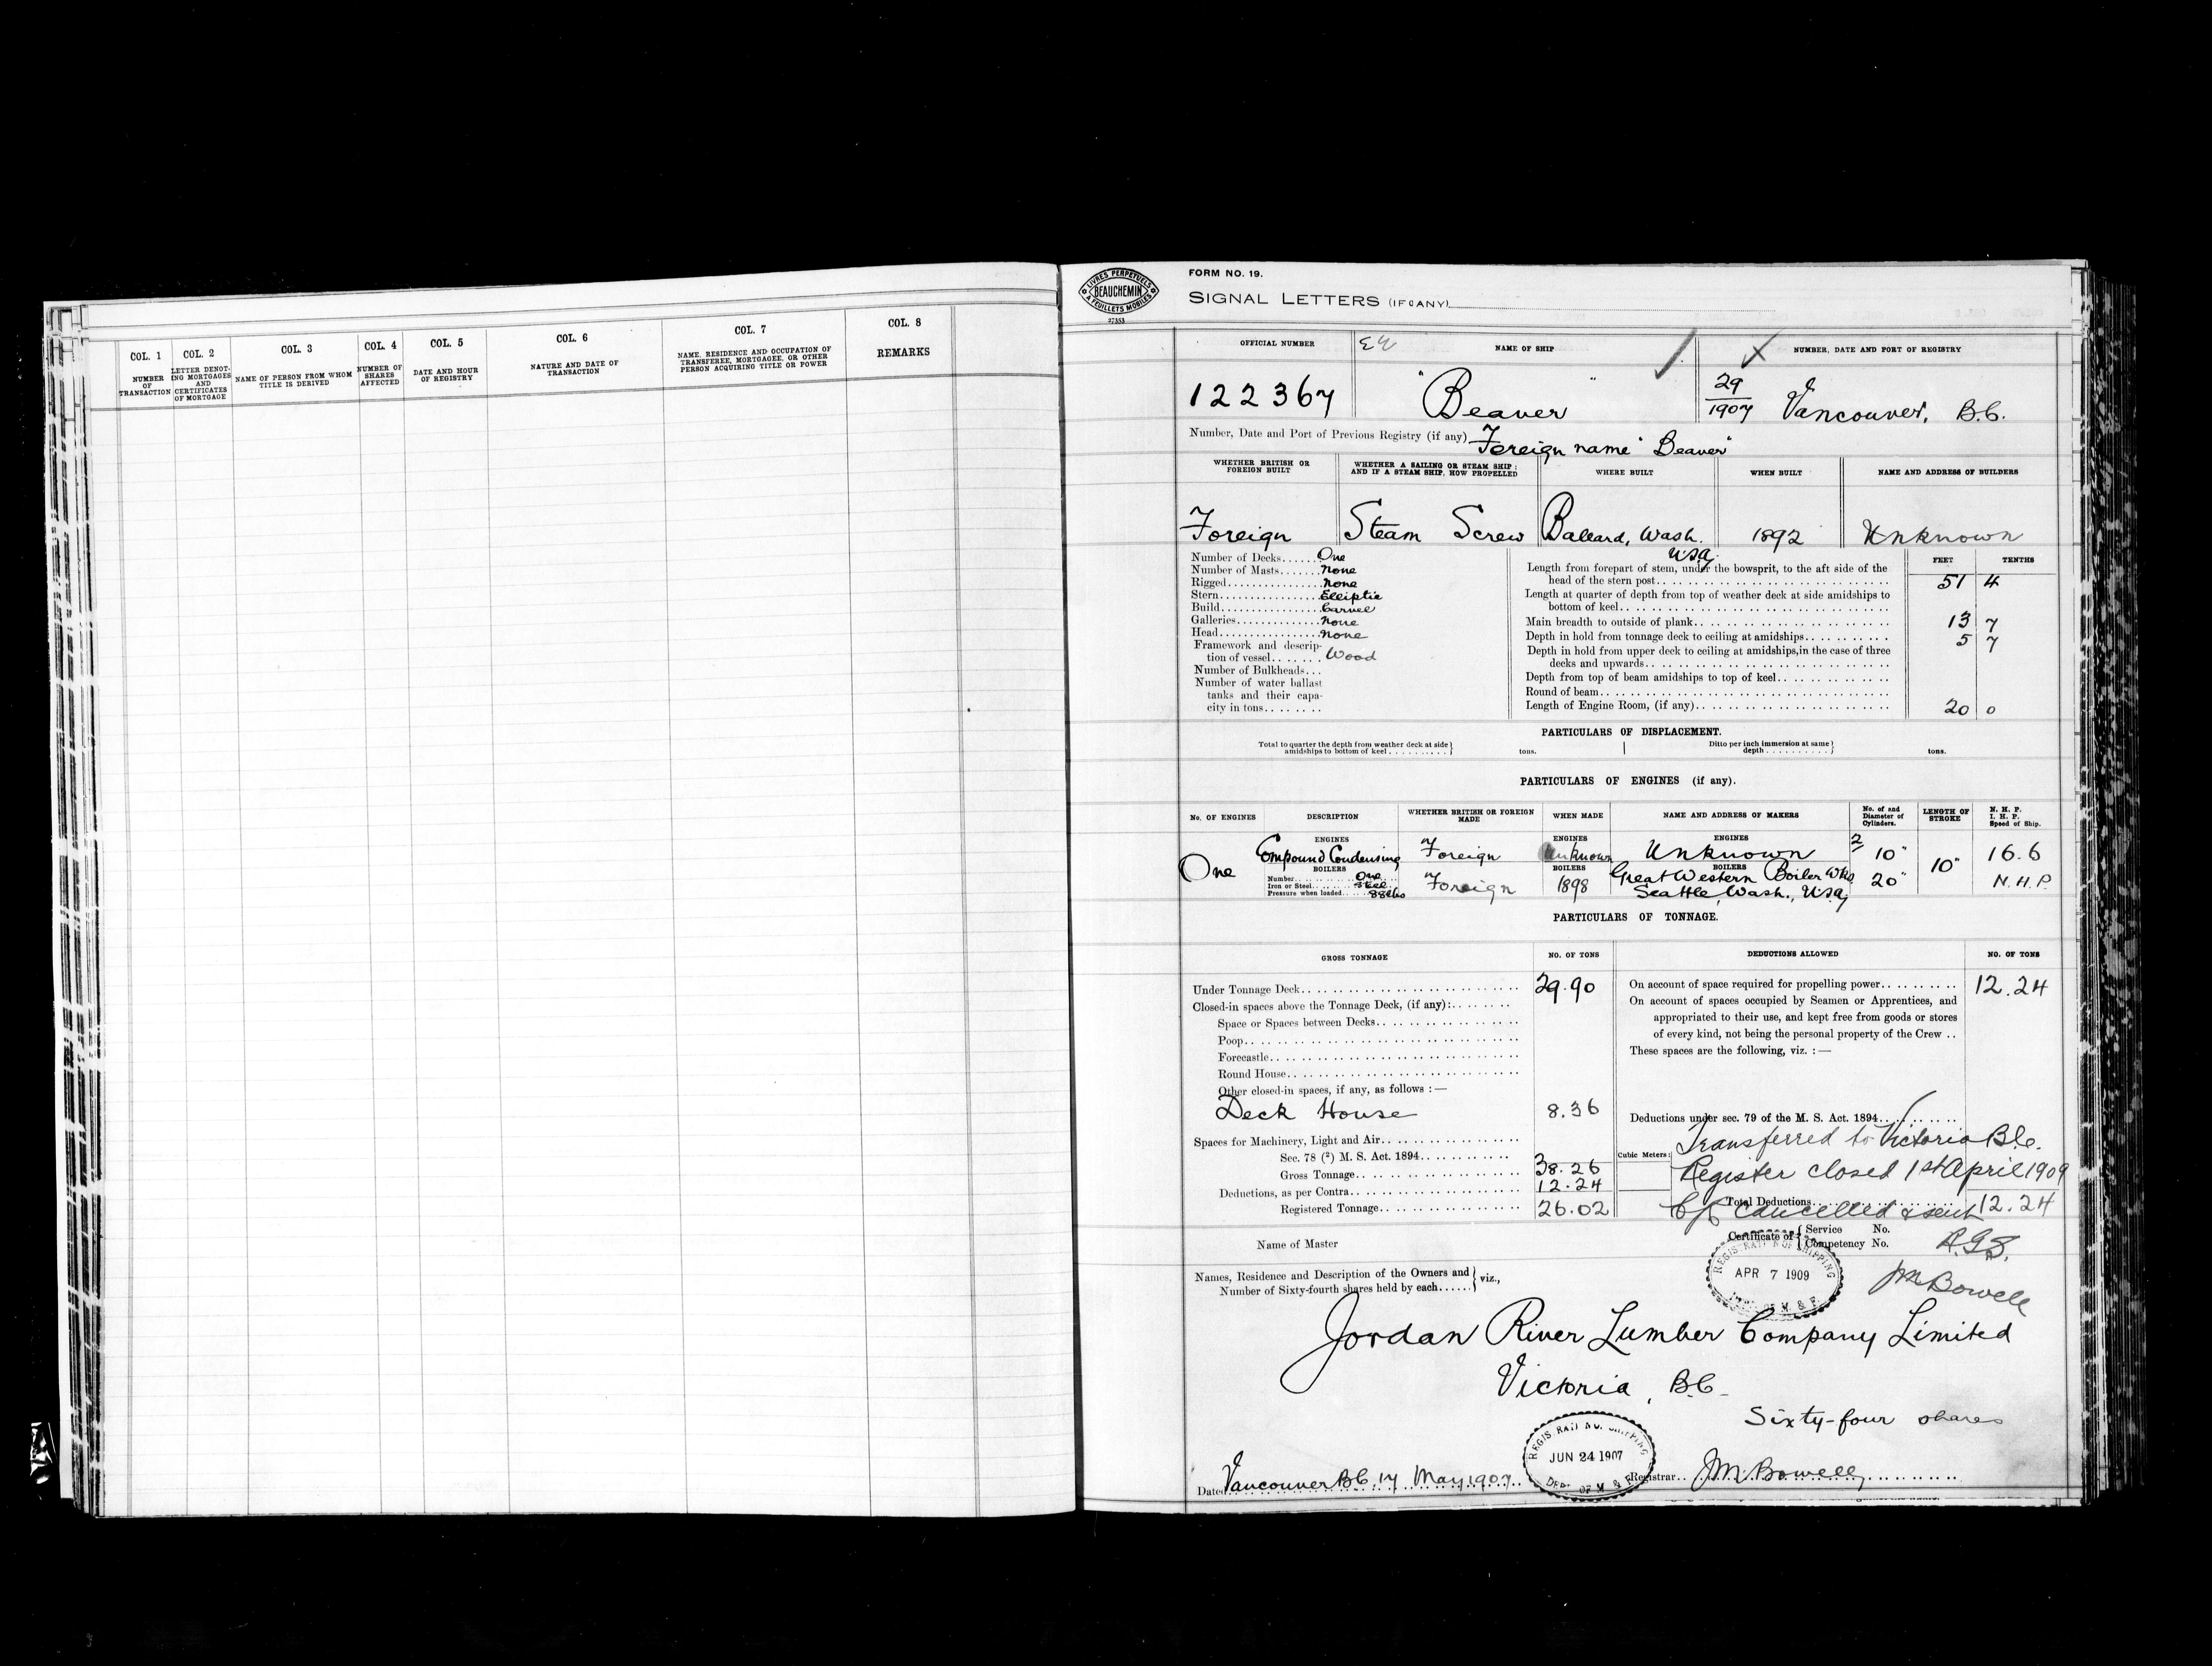 COL. 1
NUMBER OF TRANSACTION
COL. 2
LETTER DENOTING MORTGAGES AND CERTIFICATES OF MORTGAGE
COL. 3
NAME OF PERSON FROM WHOM TITLE IS DERIVED
COL. 4
NUMBER OF SHARES AFFECTED
COL. 5
DATE AND HOUR OF REGISTRY
COL. 6
NATURE AND DATE OF TRANSACTION
COL. 7
NAME, RESIDENCE AND OCCUPATION OF TRANSFEREE, MORTGAGEE, OR OTHER PERSON ACQUIRING TITLE OR POWER
COL. 8
REMARKS
LIVRES PERPETUELS
BEAUCHEMIN
A FEUILLETS MOBILES
27353
FORM NO. 19.
SIGNAL LETTERS (IF ANY)
OFFICIAL NUMBER
NAME OF SHIP
NUMBER, DATE AND PORT OF REGISTRY
122367
"Beaver"
29/1907 Vancouver, B.C.
Number, Date and Port of Previous Registry (if any) Foreign name "Beaver"
WHETHER BRITISH OR FOREIGN BUILT
WHETHER A SAILING OR STEAM SHIP; AND IF A STEAM SHIP, HOW PROPELLED
WHERE BUILT
WHEN BUILT
NAME AND ADDRESS OF BUILDERS
Foreign
Steam Screw
Ballard, Wash. USA
1892
Unknown
Number of Decks One
Number of Masts None
Rigged None
Stern Elliptic
Build Carvel
Galleries None
Head None
Framework and description of vessel Wood
Number of Bulkheads
Number of water ballast tanks and their capacity in tons
FEET TENTHS
Length from forepart of stem, under the bowsprit, to the aft side of the head of the stern post 51 4
Length at quarter of depth from top of weather deck at side amidships to bottom of keel
Main breadth to outside of plank 13 7
Depth in hold from tonnage deck to ceiling at amidships 5 7
Depth in hold from upper deck to ceiling at amidships, in the case of three decks and upwards
Depth from top of beam amidships to top of keel
Round of beam
Length of Engine Room, (if any) 20 0
PARTICULARS OF DISPLACEMENT.
Total to quarter the depth from weather deck at side amidships to bottom of keel tons.
Ditto per inch immersion at same depth tons.
PARTICULARS OF ENGINES (if any).
No. OF ENGINES
DESCRIPTION
WHETHER BRITISH OR FOREIGN MADE
WHEN MADE
NAME AND ADDRESS OF MAKERS
No. of and Diameter of Cylinders.
LENGTH OF STROKE
N. H. P. I. H. P. Speed of Ship.
One
ENGINES
Compound Condensing
BOILERS
Number One
Iron or Steel Steel
Pressure when loaded 88 lbs
Foreign
Foreign
ENGINES
Unknown
BOILERS
1898
ENGINES
Unknown
BOILERS
Great Western Boiler Wks
Seattle, Wash., USA
2
10"
20"
10"
16.6
N.H.P.
PARTICULARS OF TONNAGE.
GROSS TONNAGE
NO. OF TONS
DEDUCTIONS ALLOWED
NO. OF TONS
Under Tonnage Deck 29.90
Closed-in spaces above the Tonnage Deck, (if any):
Space or Spaces between Decks
Poop
Forecastle
Round House
Other closed-in spaces, if any, as follows :—
Deck House 8.36
Spaces for Machinery, Light and Air
Sec. 78 (²) M. S. Act. 1894
Gross Tonnage 38.26
Deductions, as per Contra 12.24
Registered Tonnage 26.02
On account of space required for propelling power 12.24
On account of spaces occupied by Seamen or Apprentices, and appropriated to their use, and kept free from goods or stores of every kind, not being the personal property of the Crew
These spaces are the following, viz. :—
Deductions under sec. 79 of the M. S. Act. 1894
Transferred to Victoria B.C.
Cubic Meters:
Register closed 1st April 1909
Total Deductions 12.24
Cancelled & sent
Name of Master
Certificate of { Service No. Competency No.
R.G.S.
JM Bowell
REGISTRATION OF SHIPPING
APR 7 1909
DEPT. OF M. & F.
Names, Residence and Description of the Owners and Number of Sixty-fourth shares held by each viz.,
Jordan River Lumber Company Limited
Victoria, B.C.
Sixty-four shares
REGISTRATION OF SHIPPING
JUN 24 1907
DEPT. OF M & F
Dated Vancouver B.C. 17 May, 1907
Registrar JM Bowell